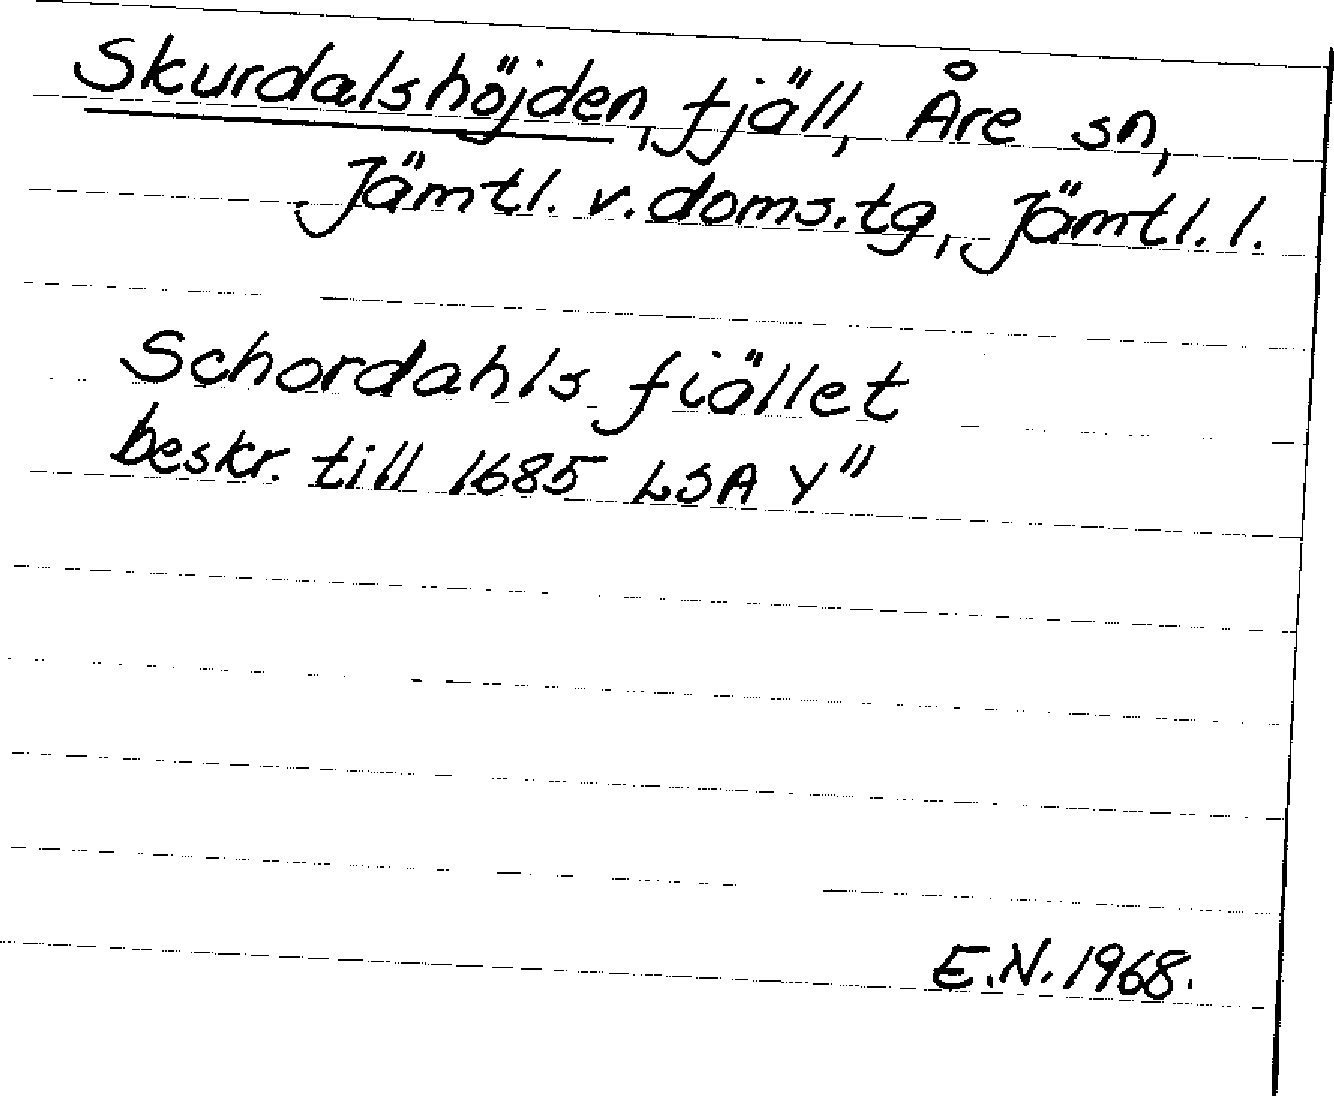 Skurdalshöjden, fjäll, Åre sn,
Jämtl. v. doms. tg, Jämtl. l.
Schordahls fiället
beskr. till 1685 LSA Y"
E.N. 1968.